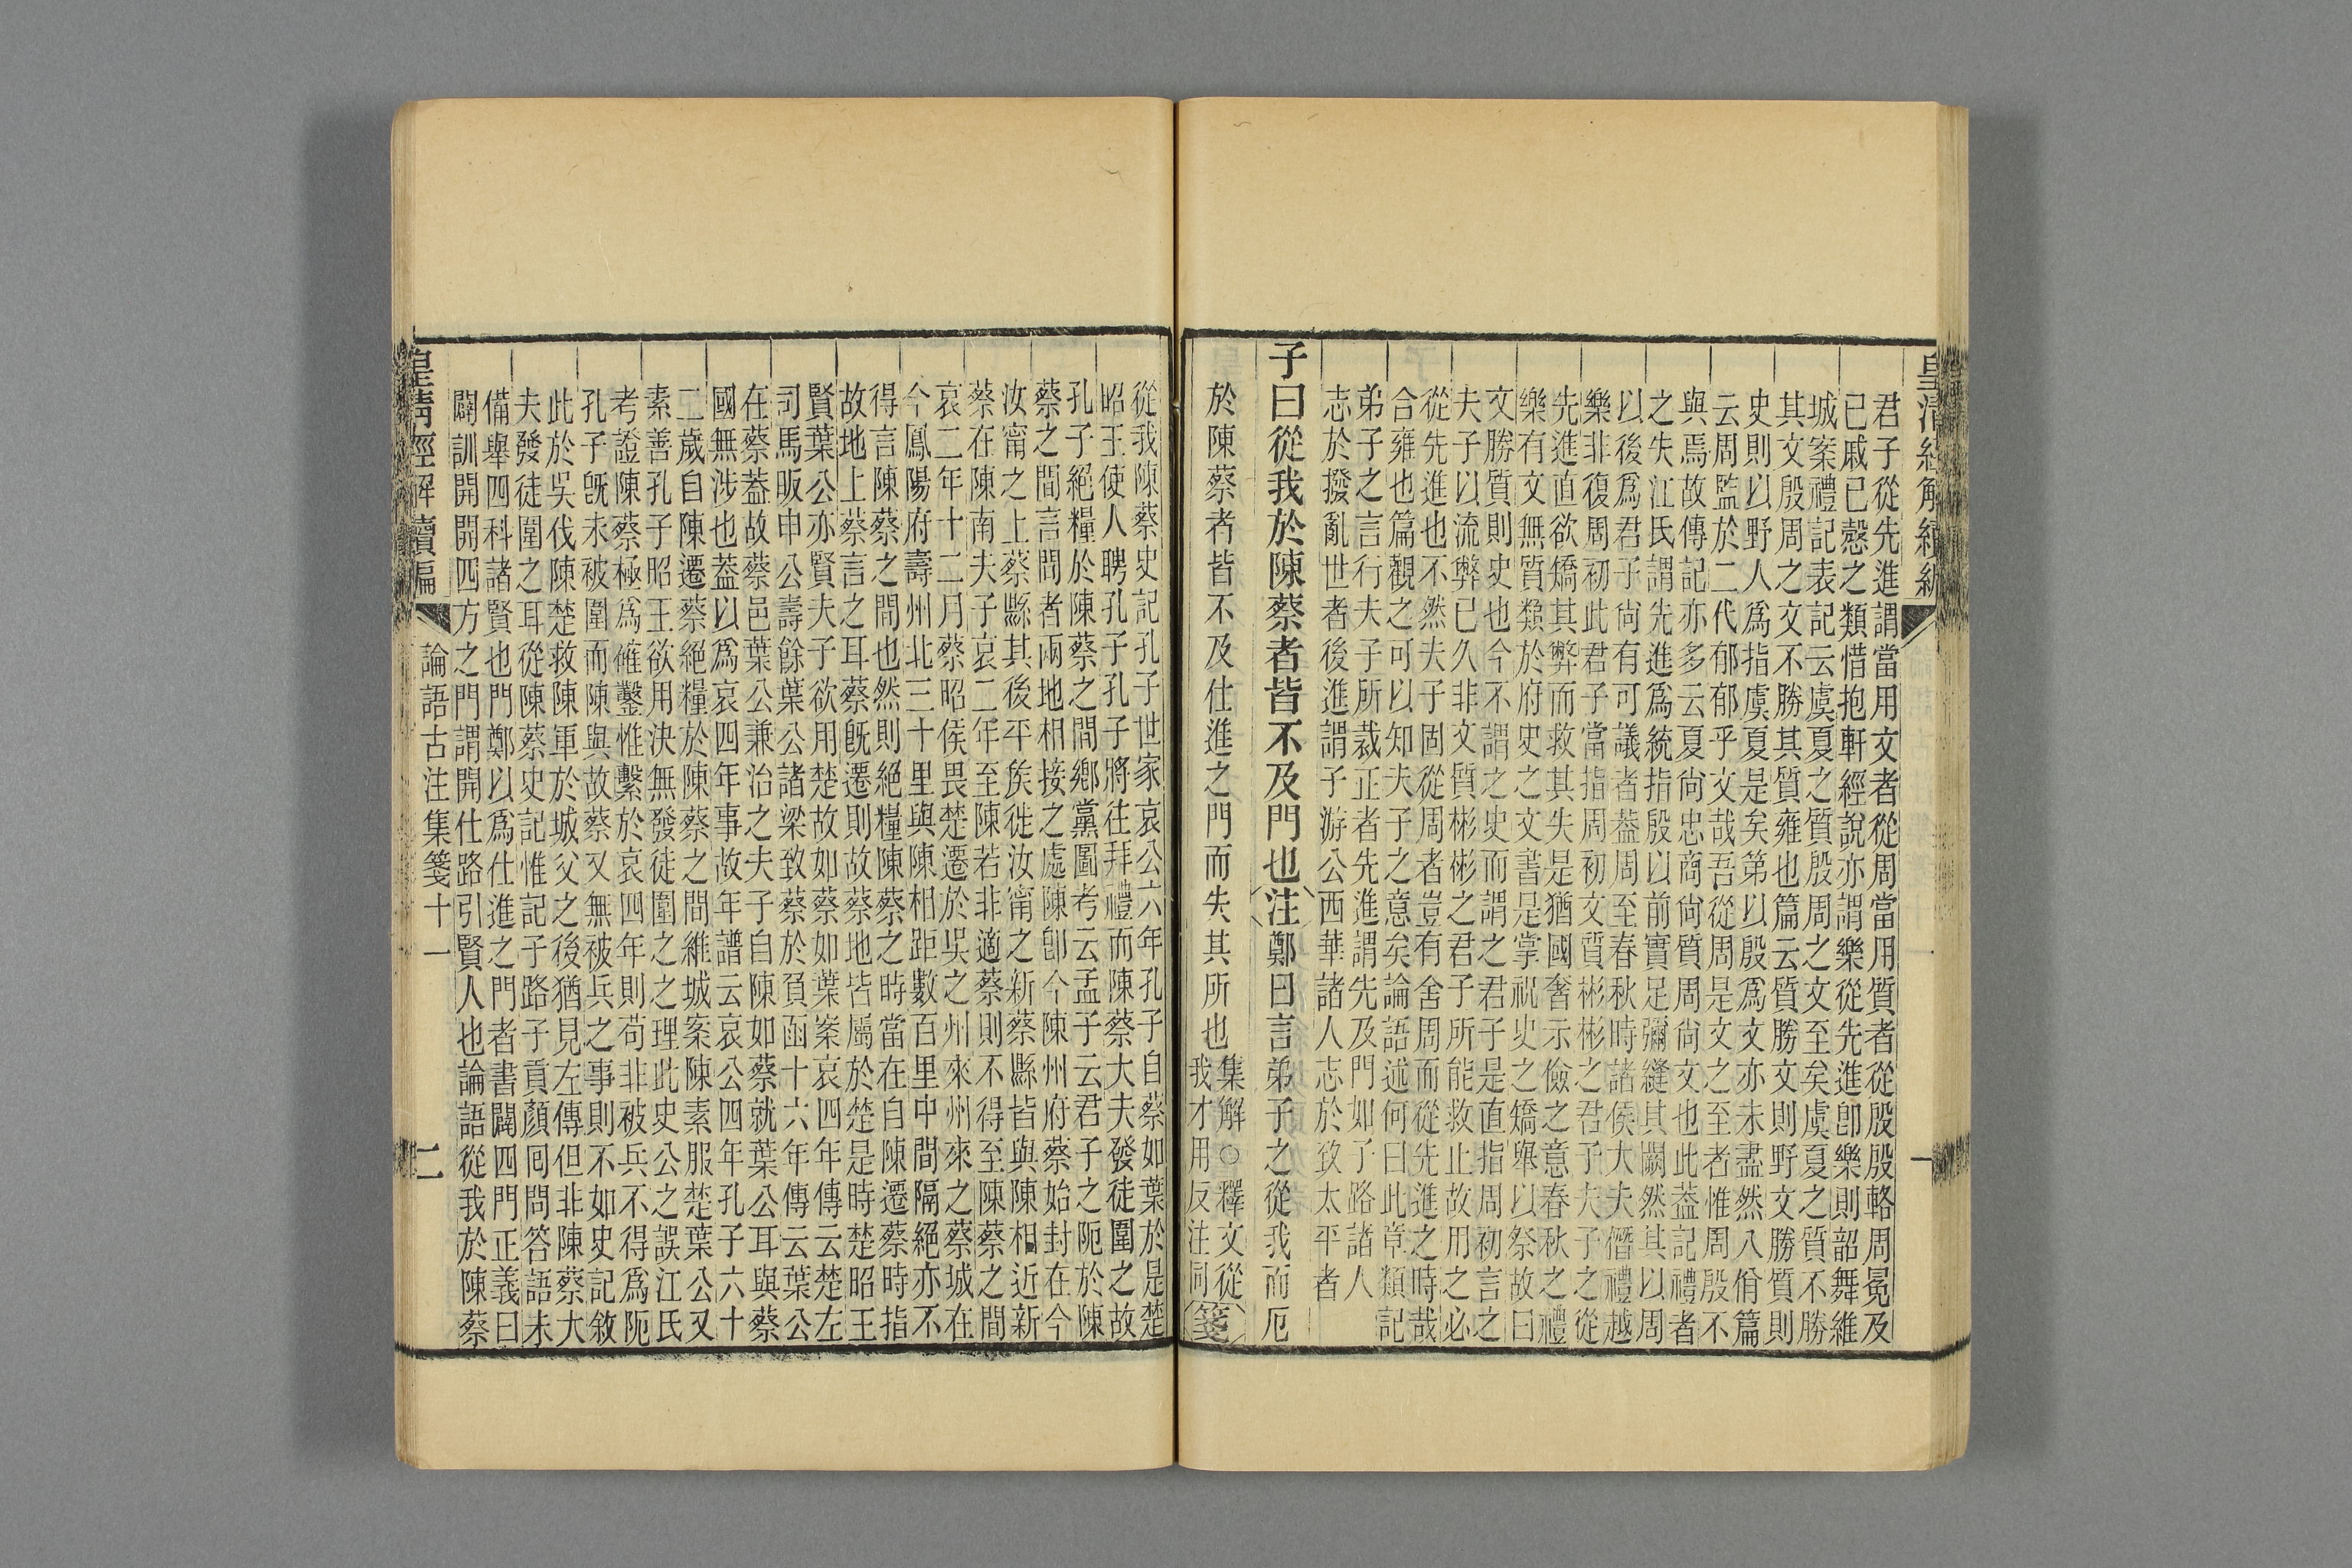 皇清經解續編
一
君子從先進謂當用文者從周當用質者從殷殷輅周冕及
已戚已愨之類惜抱軒經說亦謂樂從先進卽樂則韶舞維
城案禮記表記云虞夏之質殷周之文至矣虞夏之質不勝
其文殷周之文不勝其質雍也篇云質勝文則野文勝質則
史則以野人爲指虞夏是矣第以殷爲文亦未盡然八佾篇
云周監於二代郁郁乎文哉吾從周是文之至者惟周殷不
與焉故傳記亦多云夏尙忠商尙質周尙文也此蓋記禮者
之失江氏謂先進爲統指殷以前實足彌縫其闕然其以周
以後爲君子尙有可議者蓋周至春秋時諸侯大夫僭禮越
樂非復周初此君子當指周初文質彬彬之君子夫子之從
先進直欲矯其弊而救其失是猶國奢示儉之意春秋之禮
樂有文無質類於府史之文書是掌祝史之矯舉以祭故曰
文勝質則史也今不謂之史而謂之君子是直指周初言之
夫子以流弊已久非文質彬彬之君子所能救止故用之必
從先進也不然夫子固從周者豈有舍周而從先進之時哉
合雍也篇觀之可以知夫子之意矣論語述何曰此章類記
弟子之言行夫子所裁正者先進謂先及門如子路諸人
志於撥亂世者後進謂子游公西華諸人志於致太平者
子曰從我於陳蔡者皆不及門也注鄭曰言弟子之從我而厄
於陳蔡者皆不及仕進之門而失其所也集解○釋文從
我才用反注同箋
從我陳蔡史記孔子世家哀公六年孔子自蔡如葉於是楚
昭王使人聘孔子孔子將往拜禮而陳蔡大夫發徒圍之故
孔子絕糧於陳蔡之間鄉黨圖考云孟子云君子之阨於陳
蔡之間言間者兩地相接之處陳卽今陳州府蔡始封在今
汝甯之上蔡縣其後平侯徙汝甯之新蔡縣皆與陳相近新
蔡在陳南夫子哀二年至陳若非適蔡則不得至陳蔡之間
哀二年十二月蔡昭侯畏楚遷於吳之州來州來之蔡城在
今鳳陽府壽州北三十里與陳相距數百里中間隔絕亦不
得言陳蔡之間也然則絕糧陳蔡之時當在自陳遷蔡時指
故地上蔡言之耳蔡旣遷則故蔡地皆屬於楚是時楚昭王
賢葉公亦賢夫子欲用楚故如蔡如葉案哀四年傳云楚左
司馬眅申公壽餘葉公諸梁致蔡於負函十六年傳云葉公
在蔡蓋故蔡邑葉公兼治之夫子自陳如蔡就葉公耳與蔡
國無涉也蓋以爲哀四年事故年譜云哀公四年孔子六十
二歲自陳遷蔡絕糧於陳蔡之間維城案陳素服楚葉公又
素善孔子昭王欲用決無發徒圍之之理此史公之誤江氏
考證陳蔡極爲確鑿惟繫於哀四年則苟非被兵不得爲阨
孔子旣未被圍而陳與故蔡又無被兵之事則不如史記敘
此於吳伐陳楚救陳軍於城父之後猶見左傳但非陳蔡大
夫發徒圍之耳從陳蔡史記惟記子路子貢顏回問答語未
備舉四科諸賢也門鄭以爲仕進之門者書闢四門正義曰
闢訓開開四方之門謂開仕路引賢人也論語從我於陳蔡
皇清經解續編
論語古注集箋十一
二